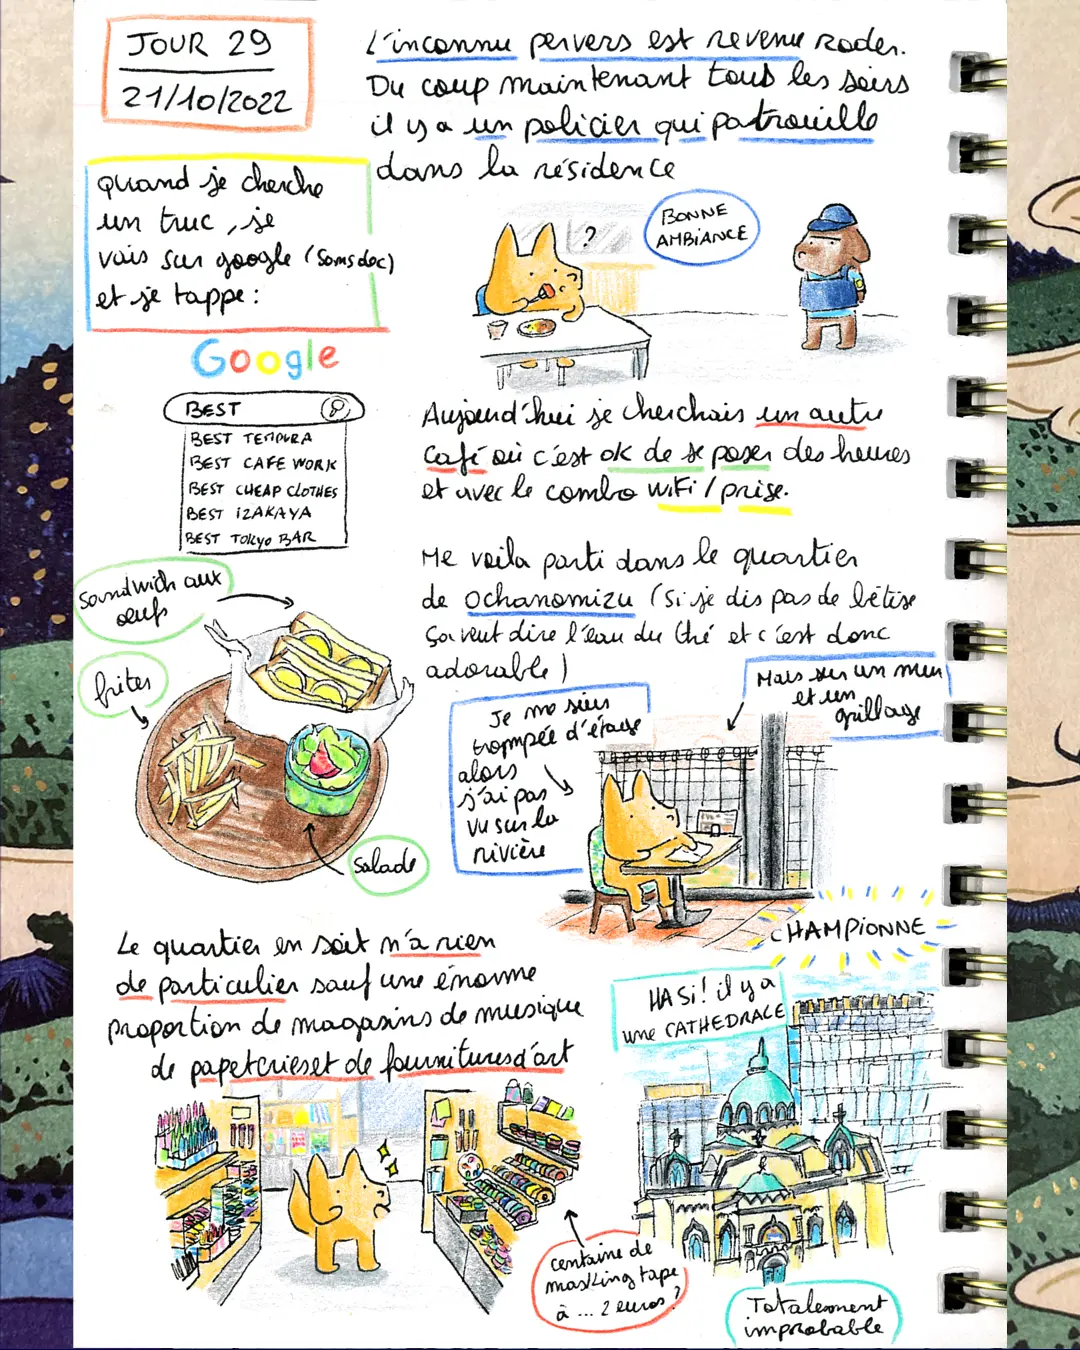 JOUR 29
21/10/2022
L'inconnu pervers est revenu roder.
Du coup maintenant tous les soirs
il y a un policier qui patrouille
dans la résidence
quand je cherche
un truc, je
vais sur google (Somsdoc)
et je tappe :
?
BONNE
AMBIANCE
Google
BEST
BEST TEMPURA
BEST CAFE WORK
BEST CHEAP CLOTHES
BEST IZAKAYA
BEST TOKYO BAR
Aujourd'hui je cherchais un autre
café où c'est ok de se poser des heures
et avec le combo wifi / prise.
Me voila parti dans le quartier
de Ochanomizu (Si je dis pas de bêtise
ça veut dire l'eau du thé et c'est donc
adorable)
Sandwich aux
oeufs
frites
salade
Je me suis
trompée d'étage
alors
j'ai pas
vu sur la
rivière
Mais sur un mur
et un
grillage
CHAMPIONNE
Le quartier en soit n'a rien
de particulier sauf une énorme
proportion de magasins de musique
de papeteries et de fournitures d'art
HA Si! il y a
une CATHEDRALE
centaine de
masking tape
à ... 2 euros ?
Totalement
improbable